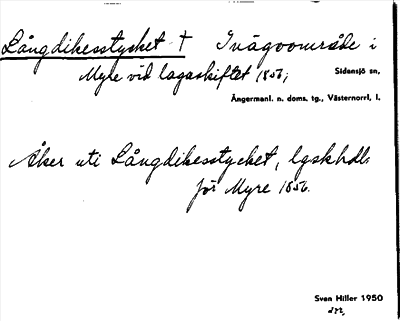 Långdikesstycket † Inägoområde i
Myre vid lagaskiftet 1856;
Sidensjö sn,
Ångermanl. n. doms. tg., Västernorrl, l.
Åker uti Långdikesstycket, lgskhdl.
för Myre 1856.
Sven Hiller 1950